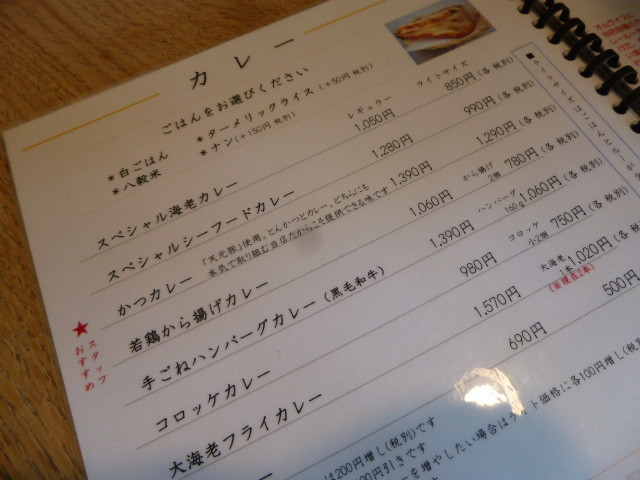 カレー
ごはんをお選びください
＊白ごはん ＊ターメリックライス(+50円 税別)
＊八穀米 ＊ナン(+150円 税別)
レギュラー ライトサイズ
スペシャル海老カレー 1,050円 850円(各 税別)
スペシャルシーフードカレー 1,280円 990円(各 税別)
かつカレー 「天元豚」使用。とんかつとカレー、どちらにも 本気で取り組む当店だからこそ提供できる味です 1,390円 1,290円(各 税別)
★スタッフおすすめ
若鶏から揚げカレー 1,060円 から揚げ2個 780円(各 税別)
手ごねハンバーグカレー(黒毛和牛) 1,390円 ハンバーグ160g 1,060円(各 税別)
コロッケカレー 980円 コロッケ小2個 750円(各 税別)
大海老フライカレー 1,570円 大海老1本 1,020円(各 税別)
690円 500円
は200円増し(税別)です
00円引きです
を増やしたい場合は
ト価格に各100円増し(税別
■ライトサイズはごはんとルーが